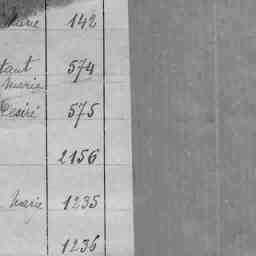 Marie 142
tant 574
Maria
Desiré 575
2156
Marie 1235
1236